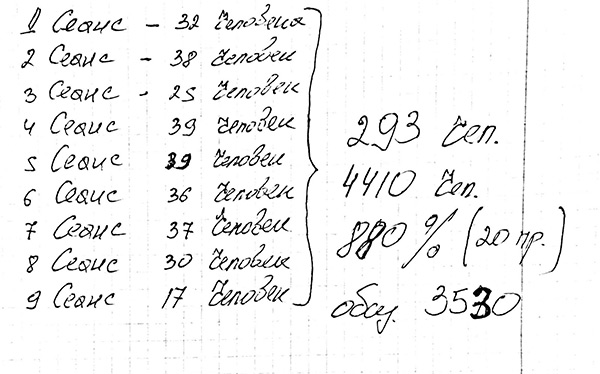 1 Сеанс - 32 Человека
2 Сеанс - 38 Человек
3 Сеанс - 25 Человек
4 Сеанс 39 Человек
5 Сеанс 39 Человек
6 Сеанс 36 Человек
7 Сеанс - 37 Человек
8 Сеанс - 30 Человек
9 Сеанс 17 Человек
293 Чел.
4410 Чел.
880 % (20 пр.)
3530